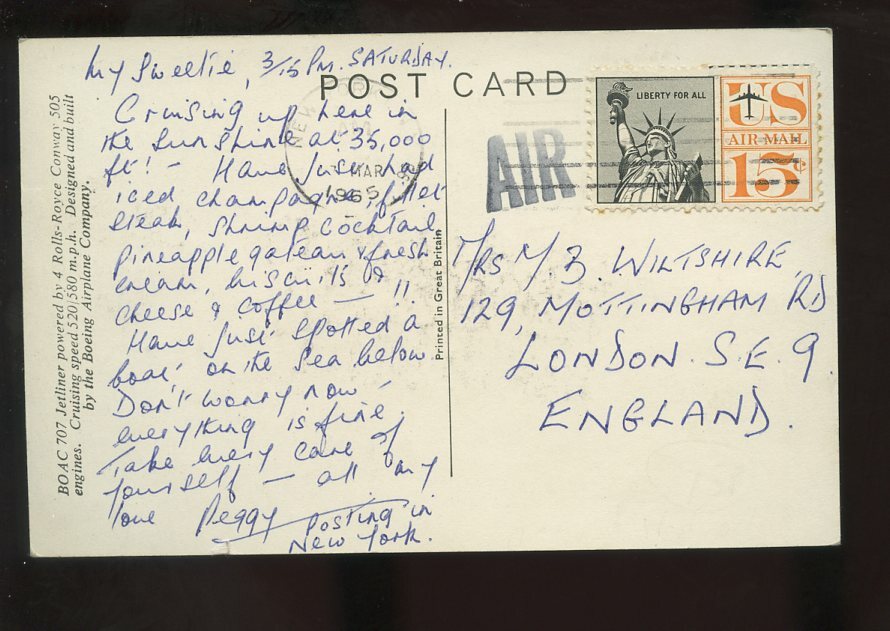 My Sweetie, 3/15 PM. SATURDAY.
POST CARD
Cruising up here in
the Sunshine at 35,000
ft! - Have just had
iced champagne, fillet
steak, shrimp cocktail
pineapple gateau & fresh
cream, biscuits &
cheese & coffee — !!
Have just spotted a
boat on the sea below.
Don't worry now -
everything is fine.
Take every care of
yourself - all my
love Peggy
Posting in
New York.
BOAC 707 Jetliner powered by 4 Rolls-Royce Conway 505
engines. Cruising speed 520/580 m.p.h. Designed and built
by the Boeing Airplane Company.
Printed in Great Britain
NEW
MAR
1965
AIR
LIBERTY FOR ALL
US
AIR MAIL
15¢
MRS M. B. WILTSHIRE
129, MOTTINGHAM RD
LONDON. S.E. 9.
ENGLAND.